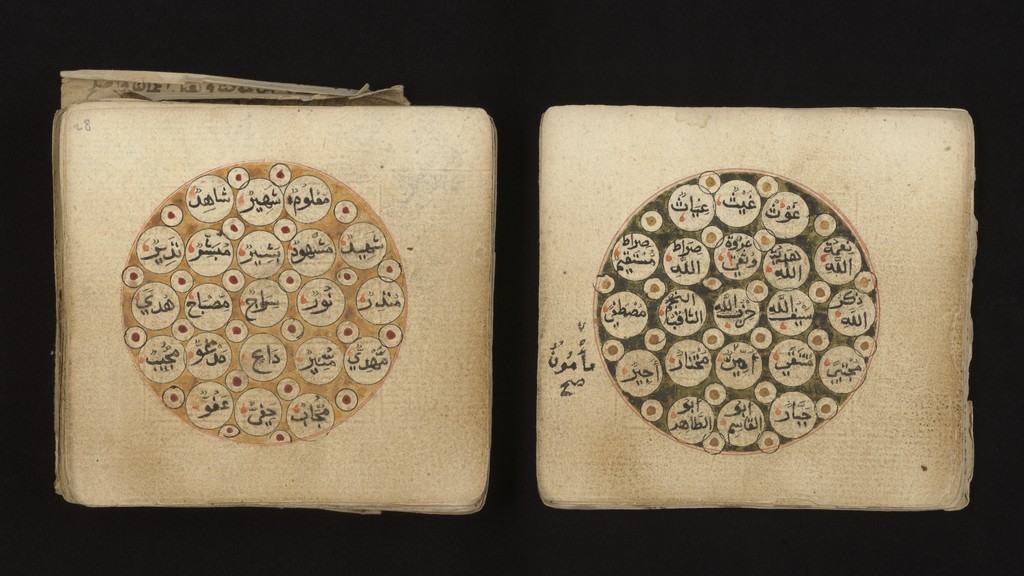 غوث غيث غياث
نعمة الله هدية الله عروة وثقى صراط الله صراط مستقيم
ذكر الله سيف الله حزب الله النجم الثاقب مصطفى
مجتبى منتقى أمي مختار أجير
جبار أبو القاسم أبو الطاهر
مأمون
صح
28
معلوم شهير شاهد
شهيد مشهود بشير مبشر نذير
منذر نور سراج مصباح هدى
مهدي منير داع مدعو مجيب
مجاب حفي عفو